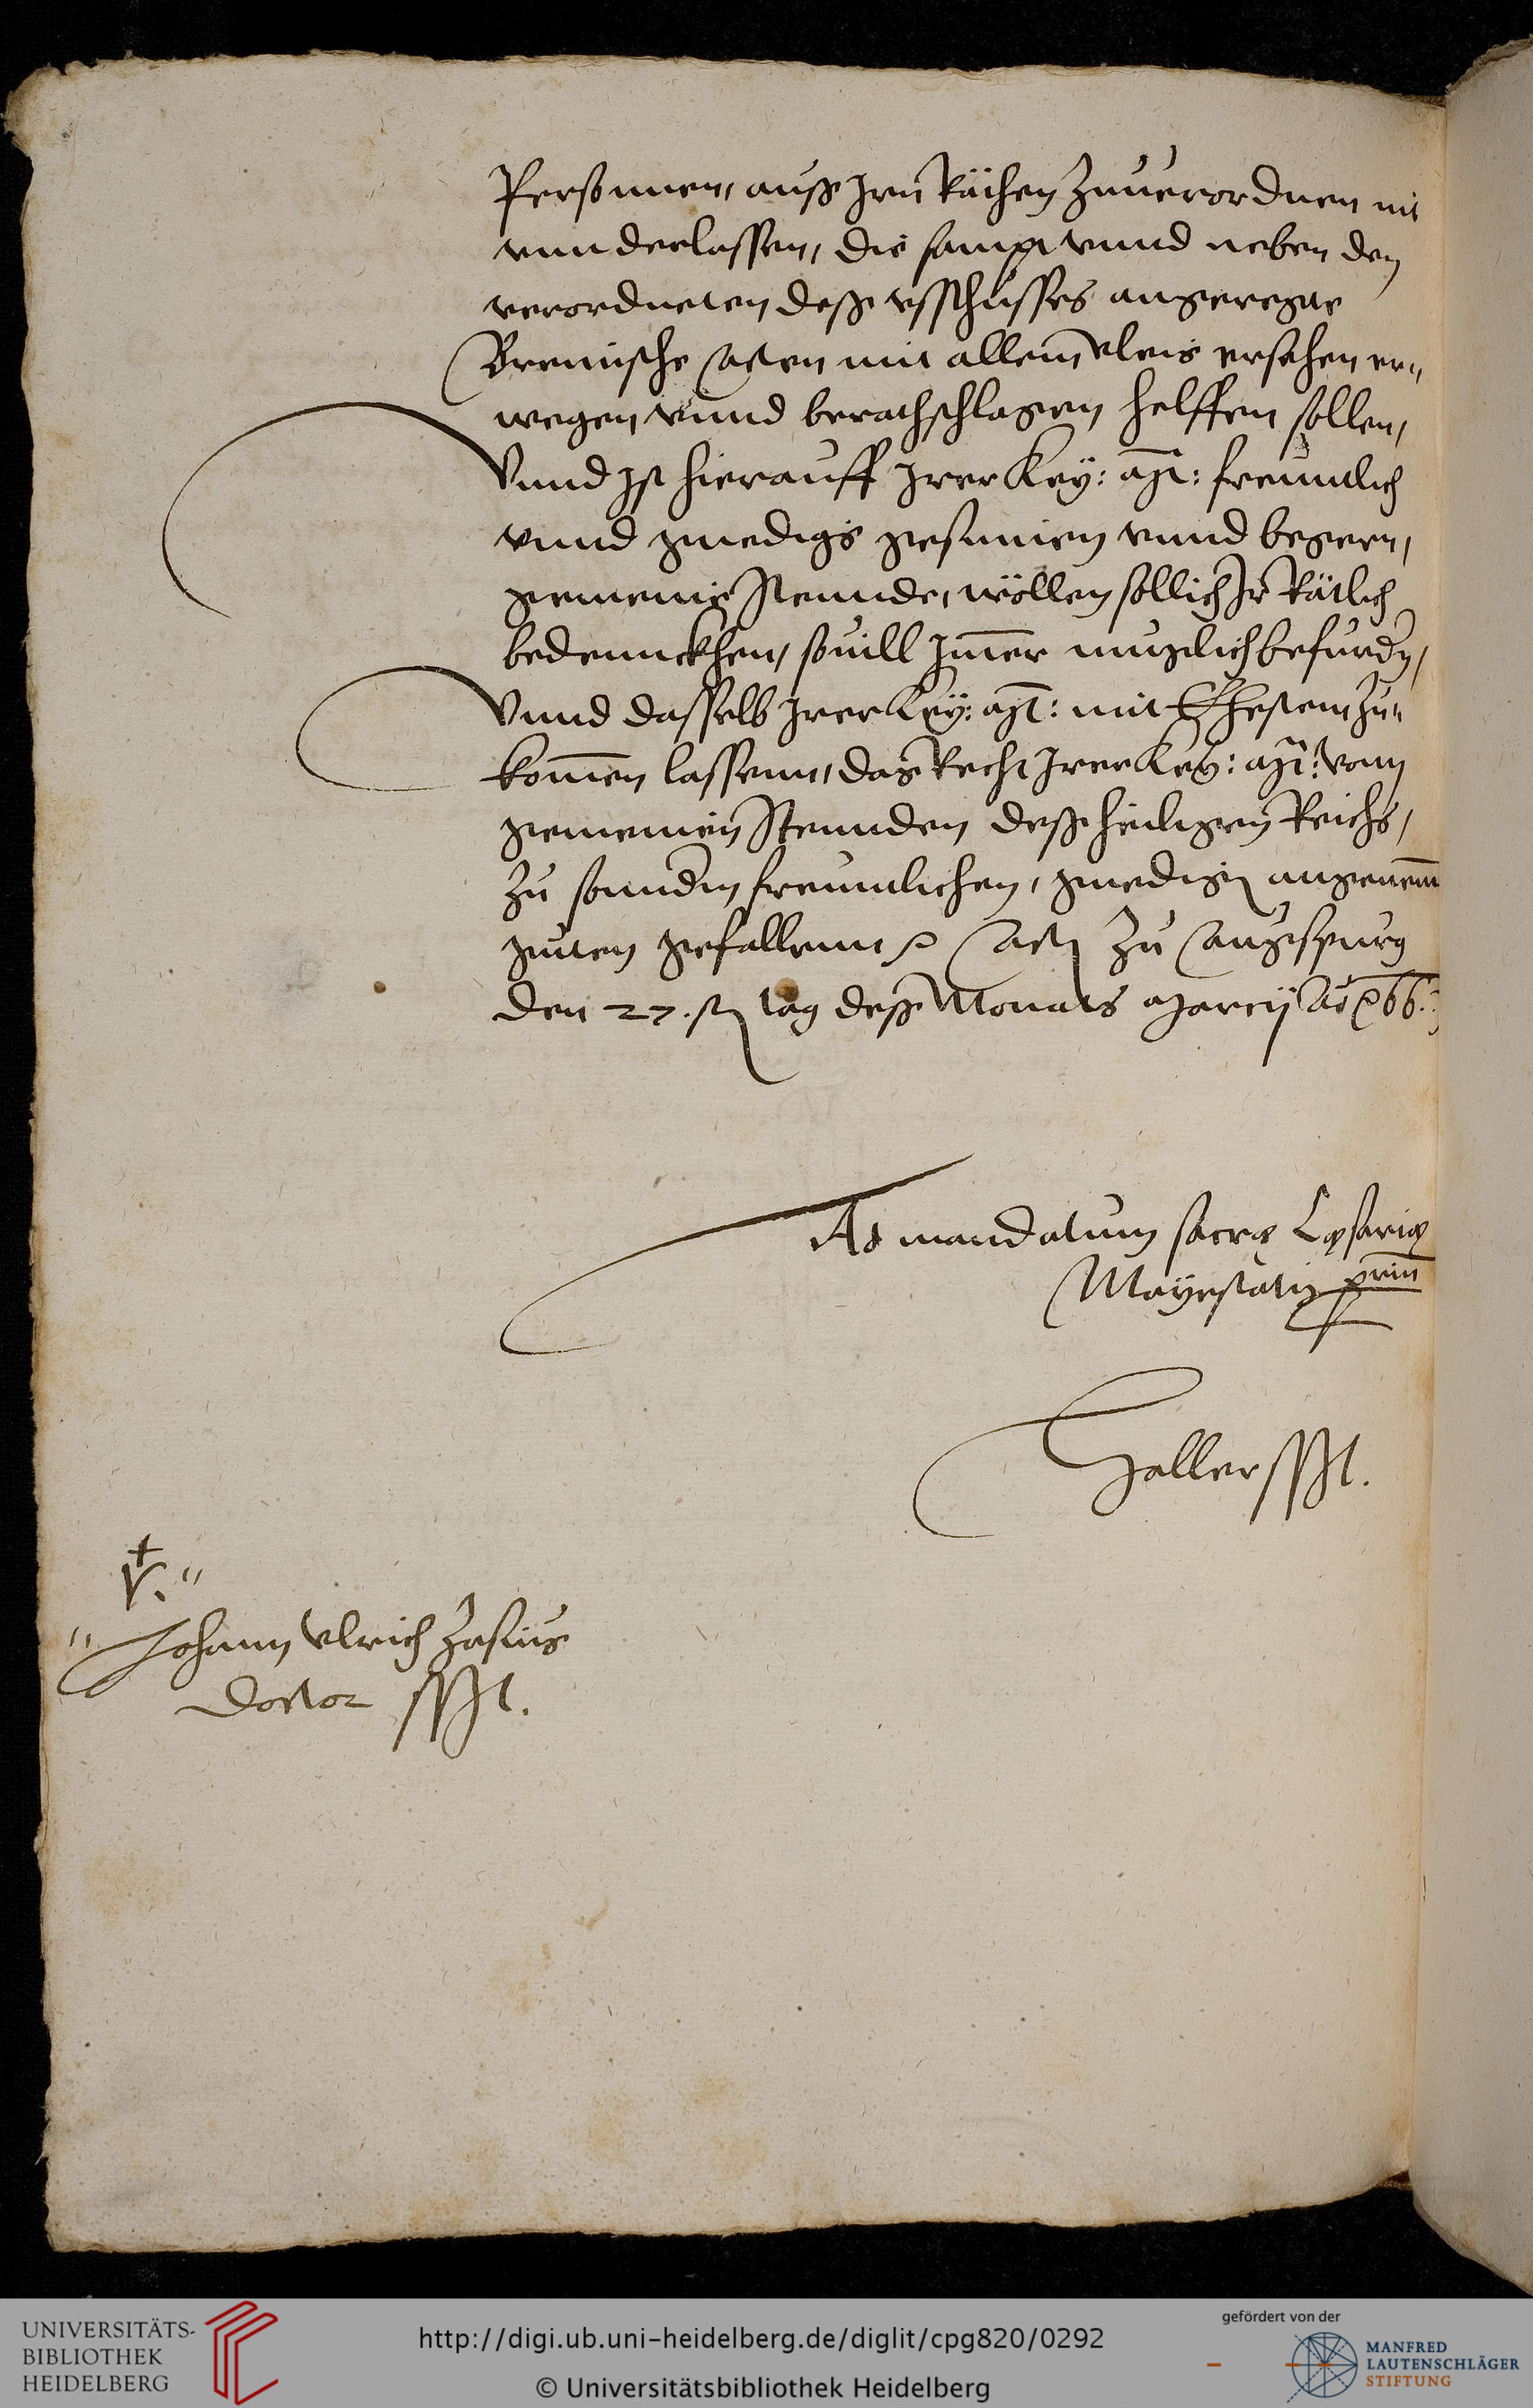 Personnen, auss Jrn Räthen zuuerordnen nit
vnnderlassen, die sampt vnnd neben den
verordneten dess vsschusses angeregte
Bremische Acten mit allem vleis ersehen er„
wegen vnnd berathschlagen helffen sollen,
Vnnd Jst hierauff Jrer Key: Mt: freuntlich
vnnd gnedigs gesinnen vnnd begern,
gemeine Stennde, wöllen sollich Jr Rätlich
bedennckhen, souill Jmer muglich befurdn,
Vnnd dasselb Jrer Key: Mt: mit Ehestem zu„
komen lassenn, das Recht Jrer Key: Mt: vonn
gemeinen Stennden dess heiligen Reichs,
zu sonndn freuntlichen, gnedign angenem
guten gefallenn Actu zu Augspurg
den 27. tag dess Monats Marcij Ao 66.
Ad mandatum sacrę Cęsarię
Mayestatis prium
Haller sst.
V.„
„ Johann Vlrich Zasius
Doctor sst.
UNIVERSITÄTS-
BIBLIOTHEK
HEIDELBERG
http://digi.ub.uni-heidelberg.de/diglit/cpg820/0292
© Universitätsbibliothek Heidelberg
gefördert von der
MANFRED
LAUTENSCHLÄGER
STIFTUNG